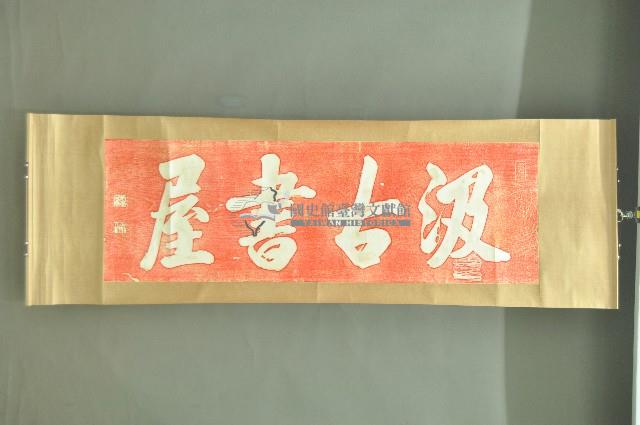 汲古書屋
國史館臺灣文獻館
TAIWAN HISTORICA